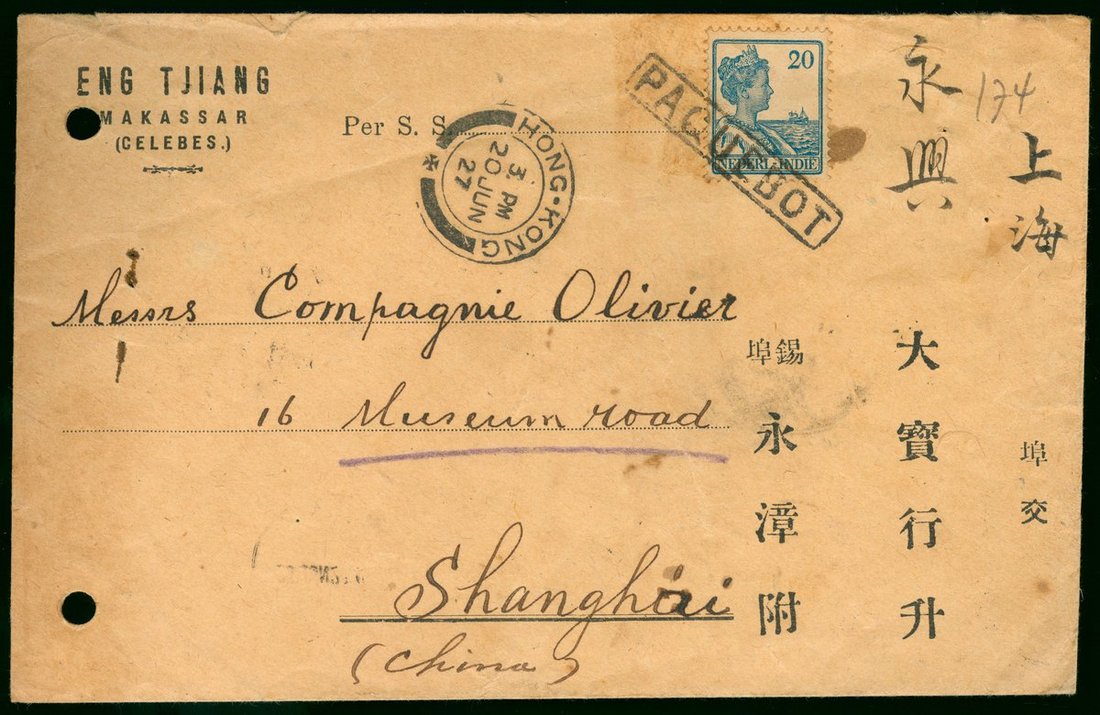 ENG TJIANG
MAKASSAR
(CELEBES.)
Per S. S.
HONG-KONG
3 PM
20 JUN
27
PAQUEBOT
20
NEDERL-INDIE
174
Messrs Compagnie Olivier
16 Museum road
Shanghai
(China)
上海
埠交
永興
大寶行升
錫埠
永漳附